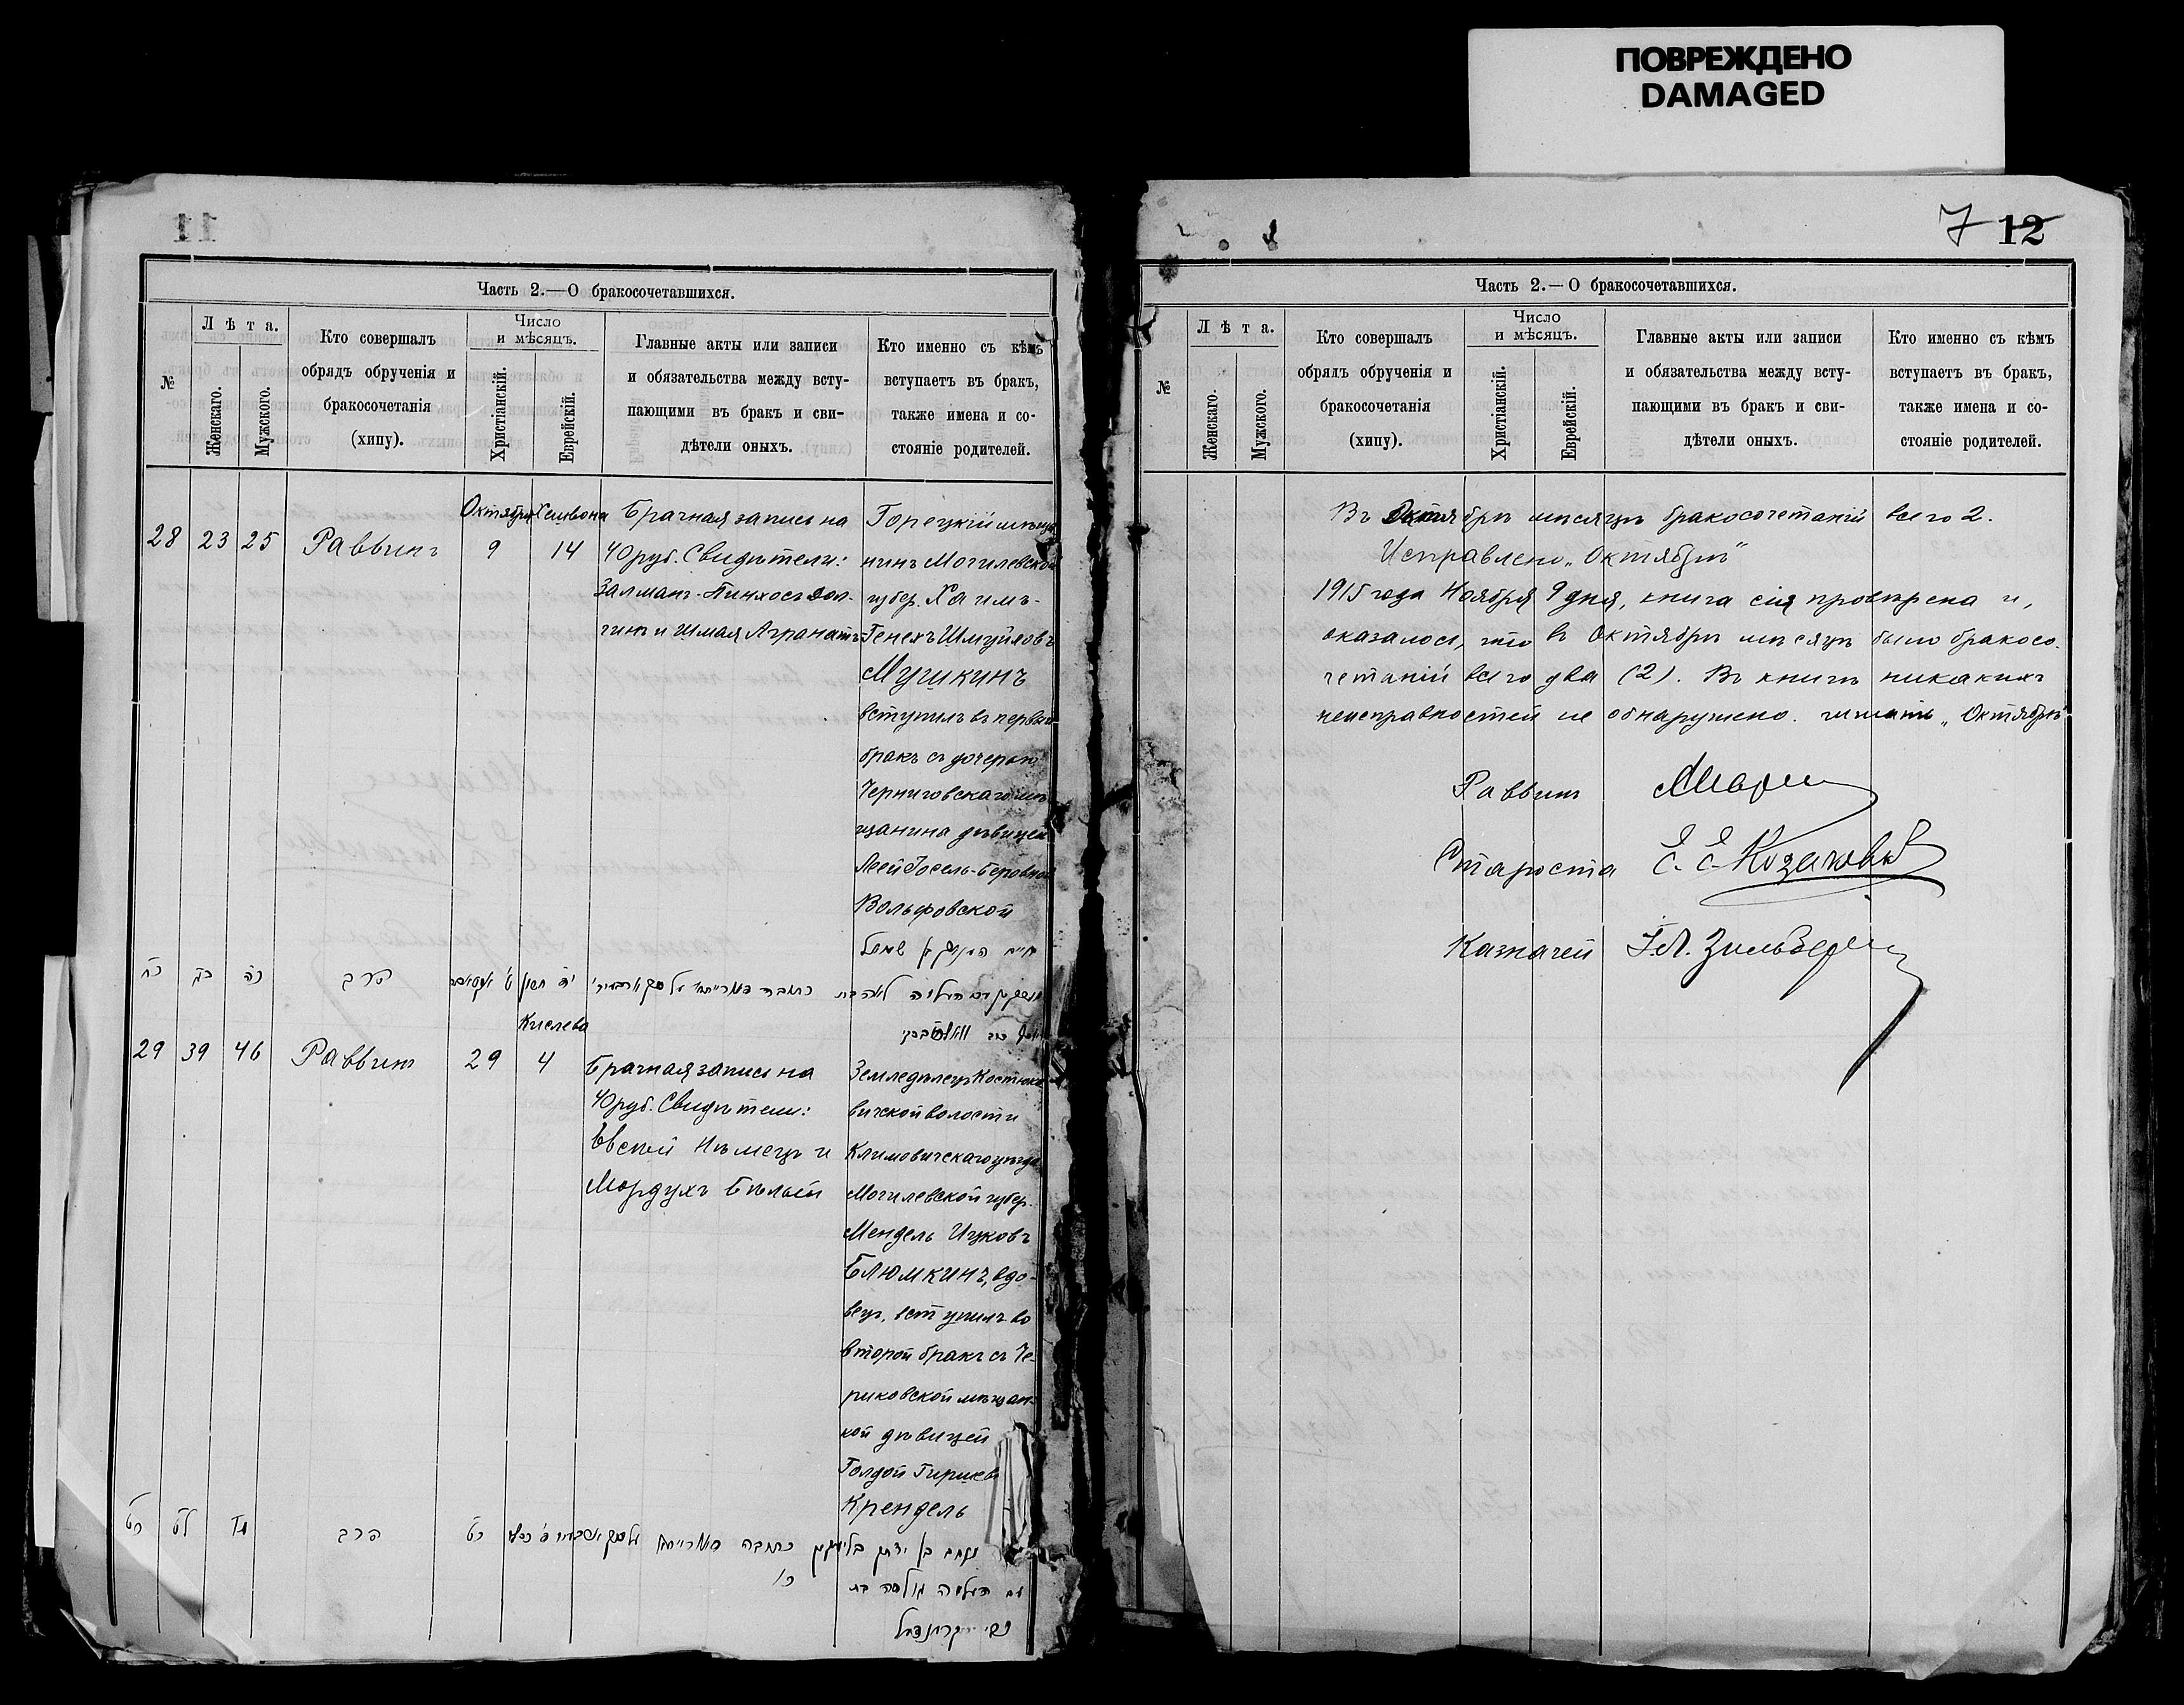 ПОВРЕЖДЕНО
DAMAGED
11
Часть 2.—О бракосочетавшихся.
№
Лѣта.
Женскаго.
Мужского.
Кто совершалъ
обрядъ обрученія и
бракосочетанія
(хипу).
Число
и мѣсяцъ.
Христіанскій.
Еврейскій.
Главные акты или записи
и обязательства между всту-
пающими въ бракъ и сви-
дѣтели оныхъ.
Кто именно съ кѣмъ
вступаетъ въ бракъ,
также имена и со-
стояніе родителей.
28
23
25
Раввинъ
Октября
9
14
Брачная запись на
40 руб. Свидѣтели:
Залманъ-Пинхосъ
и Шмая Агранатъ
Горецкій мѣща-
нинъ Могилевской
губер. Хаимъ-
Генехъ Шмуйловъ
Мушкинъ
вступилъ въ первый
бракъ съ дочерью
Черниговскаго мѣ-
щанина дѣвицей
Леей Іосель-Беровной
Вольфовской
כח
כג
כה
הרב
29
39
46
Раввинъ
29
Кислева
4
Брачная запись на
40 руб. Свидѣтели:
Евсей Нѣмецъ и
Мордухъ Бѣлый
Земледѣлецъ Костюко-
вичской волости
Климовичскаго уѣзда
Могилевской губер.
Мендель Ицковъ
Блюмкинъ, вдо-
вецъ, вступилъ во
второй бракъ съ Че-
риковской мѣщан-
кой дѣвицей
Голдой Гиршев
Крендель
כט
לט
מו
הרב
כט
12
7
Часть 2.—О бракосочетавшихся.
№
Лѣта.
Женскаго.
Мужского.
Кто совершалъ
обрядъ обрученія и
бракосочетанія
(хипу).
Число
и мѣсяцъ.
Христіанскій.
Еврейскій.
Главные акты или записи
и обязательства между всту-
пающими въ бракъ и сви-
дѣтели оныхъ.
Кто именно съ кѣмъ
вступаетъ въ бракъ,
также имена и со-
стояніе родителей.
Въ Октябрѣ мѣсяцѣ бракосочетаній всего 2.
Исправлено „Октябрѣ"
1915 года Ноября 9 дня, книга сія провѣрена и,
оказалось, что въ Октябрѣ мѣсяцѣ было бракосо-
четаній всего два (2). Въ книгѣ никакихъ
неисправностей не обнаружено. читать „Октябрѣ"
Раввинъ
Староста Е. С. Козаковъ
Казначей